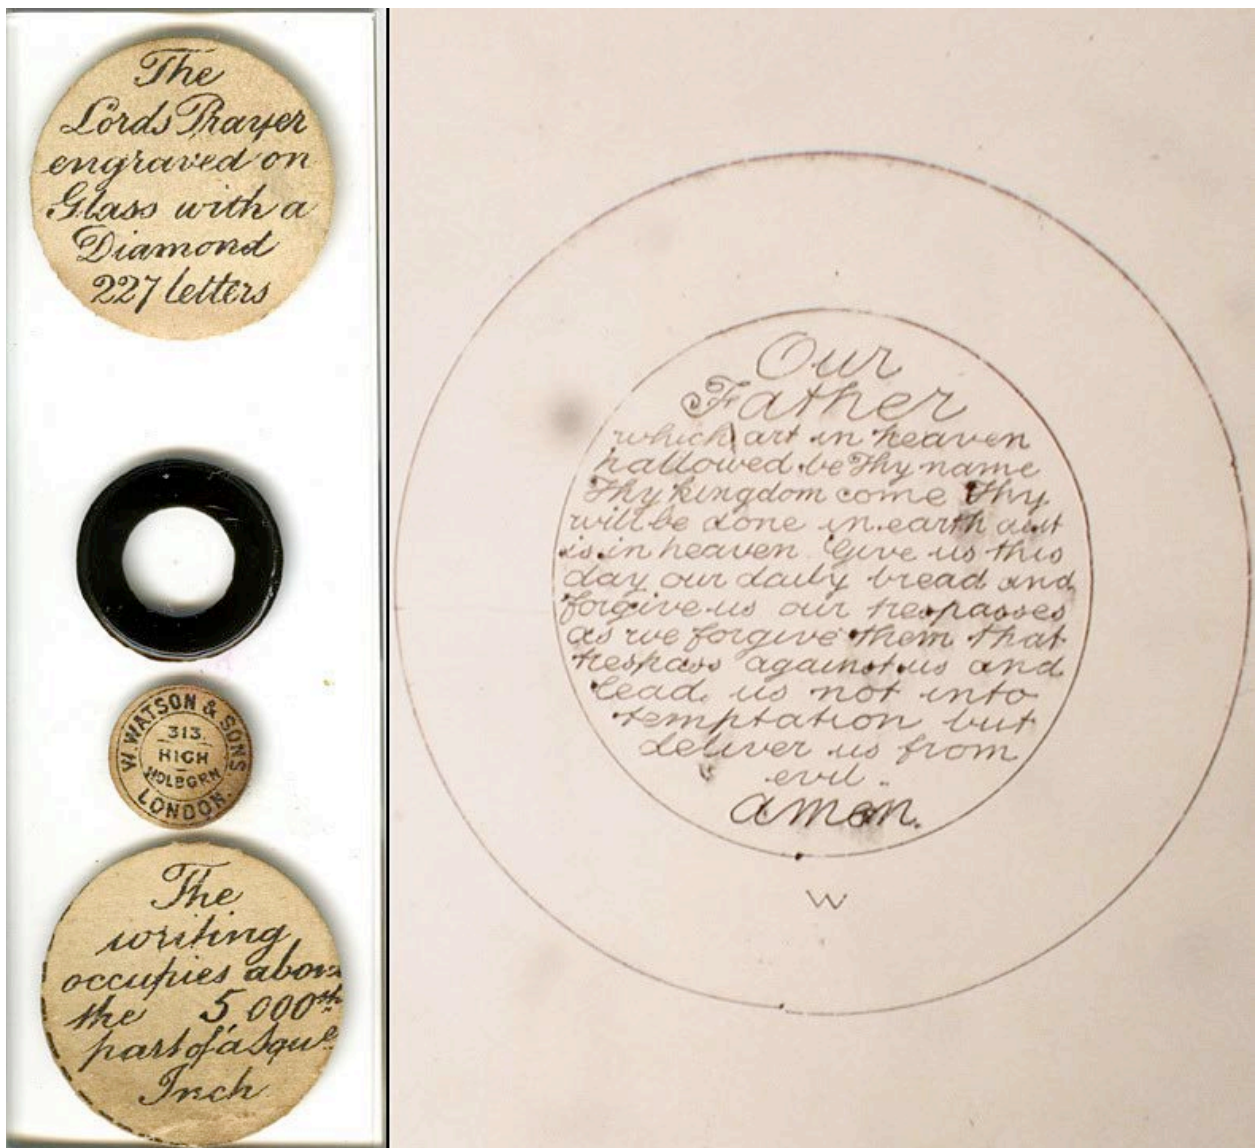 The
Lords Prayer
engraved on
Glass with a
Diamond
227 letters
W. WATSON & SONS
313.
HIGH
HOLBORN
LONDON.
The
writing
occupies about
the 5000th
part of a Sque
Inch
Our
Father
which art in heaven
hallowed be Thy name
Thy kingdom come Thy
will be done in earth as it
is in heaven Give us this
day our daily bread and
forgive us our trespasses
as we forgive them that
trespass against us and
lead us not into
temptation but
deliver us from
evil.
amen.
W